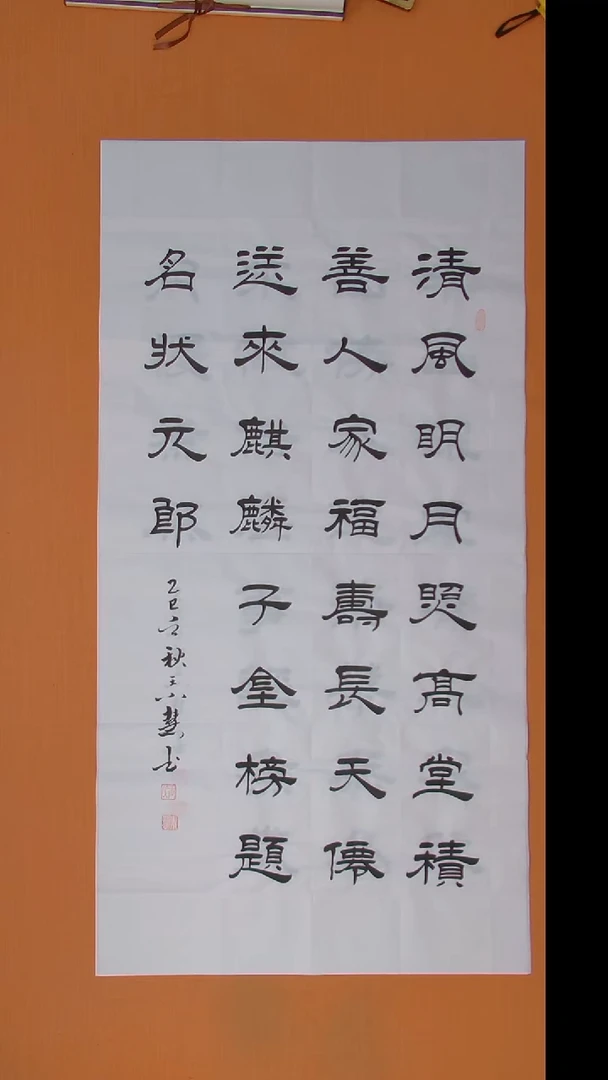 清風明月照高堂積
善人家福壽長天僊
送來麒麟子金榜題
名狀元郎
乙巳之秋 慧书